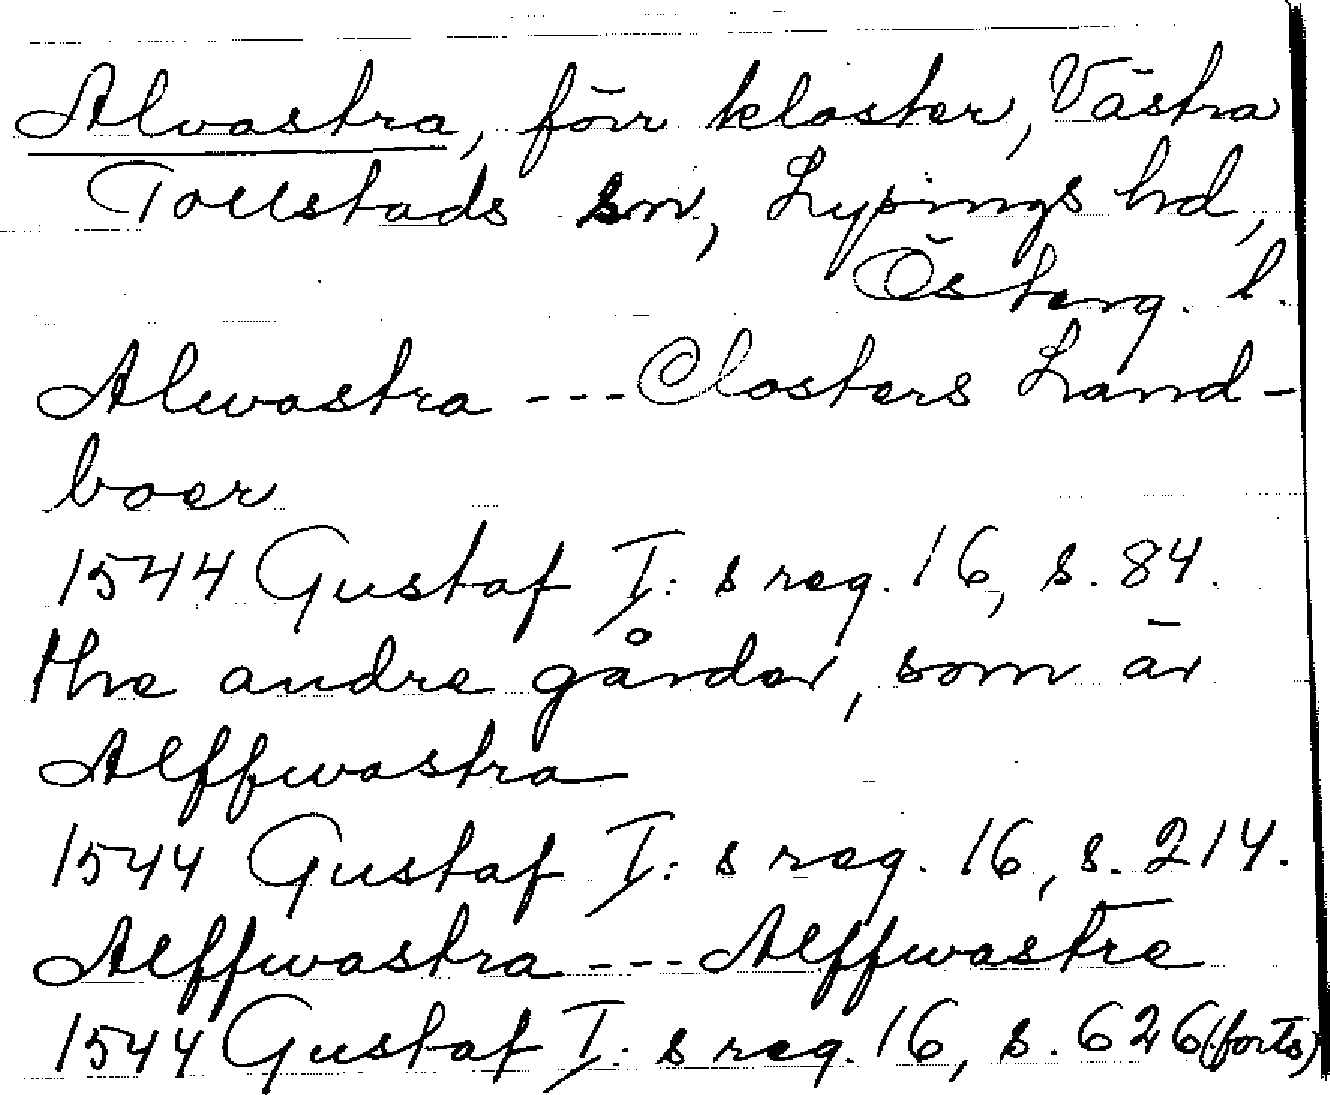 Alvastra, förr kloster, Västra
Tollstads sn, Lysings hd,
Österg. l.
Alwastra --- Closters Land-
boer
1544 Gustaf I:s reg. 16, s. 84.
the andre gårder, som är
Alffwastra
1544 Gustaf I:s reg. 16, s. 214.
Alffwastra --- Alffwastre
1544 Gustaf I:s reg. 16, s. 626 (forts)